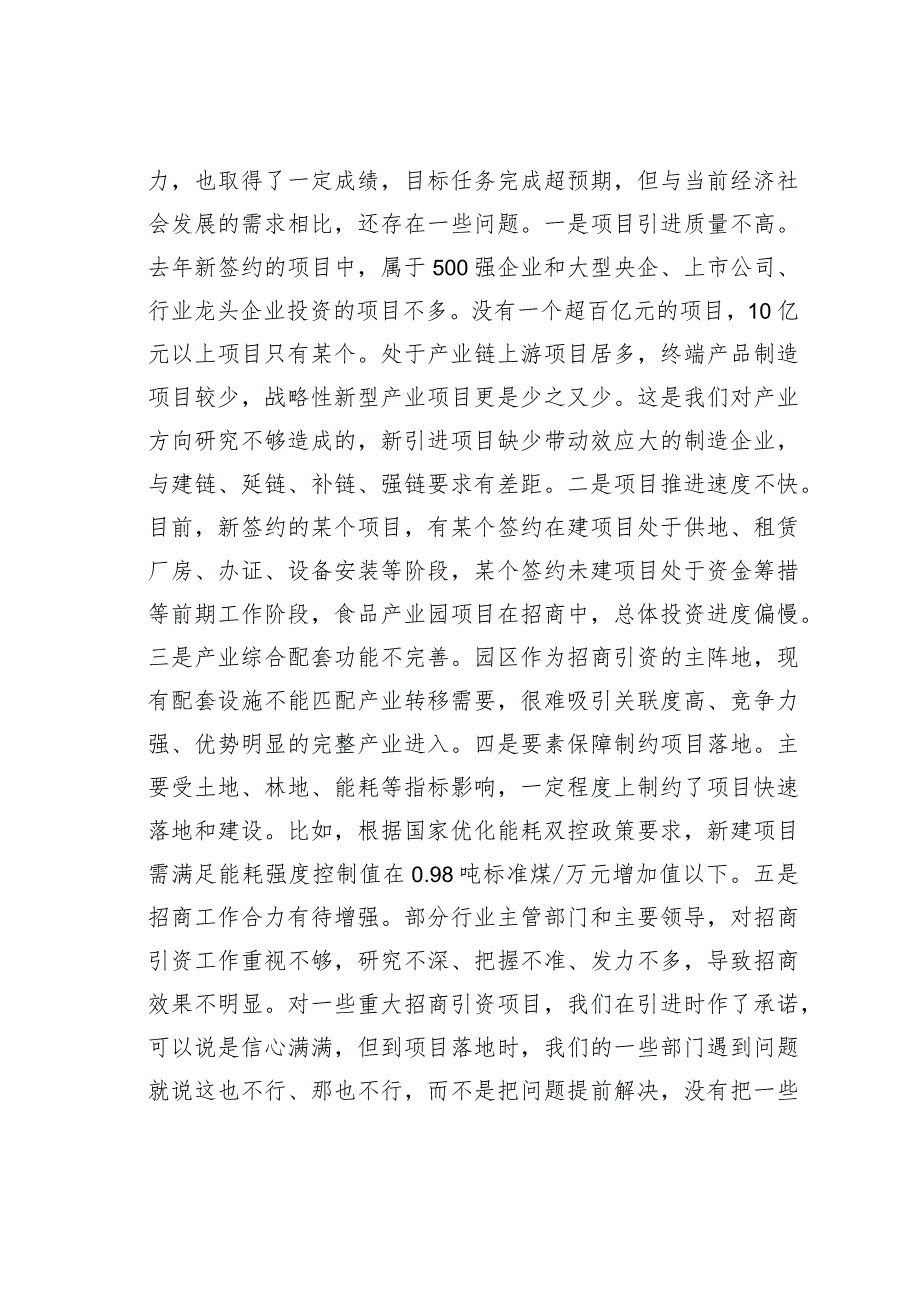 力，也取得了一定成绩，目标任务完成超预期，但与当前经济社
会发展的需求相比，还存在一些问题。一是项目引进质量不高。
去年新签约的项目中，属于 500 强企业和大型央企、上市公司、
行业龙头企业投资的项目不多。没有一个超百亿元的项目，10 亿
元以上项目只有某个。处于产业链上游项目居多，终端产品制造
项目较少，战略性新型产业项目更是少之又少。这是我们对产业
方向研究不够造成的，新引进项目缺少带动效应大的制造企业，
与建链、延链、补链、强链要求有差距。二是项目推进速度不快。
目前，新签约的某个项目，有某个签约在建项目处于供地、租赁
厂房、办证、设备安装等阶段，某个签约未建项目处于资金筹措
等前期工作阶段，食品产业园项目在招商中，总体投资进度偏慢。
三是产业综合配套功能不完善。园区作为招商引资的主阵地，现
有配套设施不能匹配产业转移需要，很难吸引关联度高、竞争力
强、优势明显的完整产业进入。四是要素保障制约项目落地。主
要受土地、林地、能耗等指标影响，一定程度上制约了项目快速
落地和建设。比如，根据国家优化能耗双控政策要求，新建项目
需满足能耗强度控制值在 0.98 吨标准煤/万元增加值以下。五是
招商工作合力有待增强。部分行业主管部门和主要领导，对招商
引资工作重视不够，研究不深、把握不准、发力不多，导致招商
效果不明显。对一些重大招商引资项目，我们在引进时作了承诺，
可以说是信心满满，但到项目落地时，我们的一些部门遇到问题
就说这也不行、那也不行，而不是把问题提前解决，没有把一些